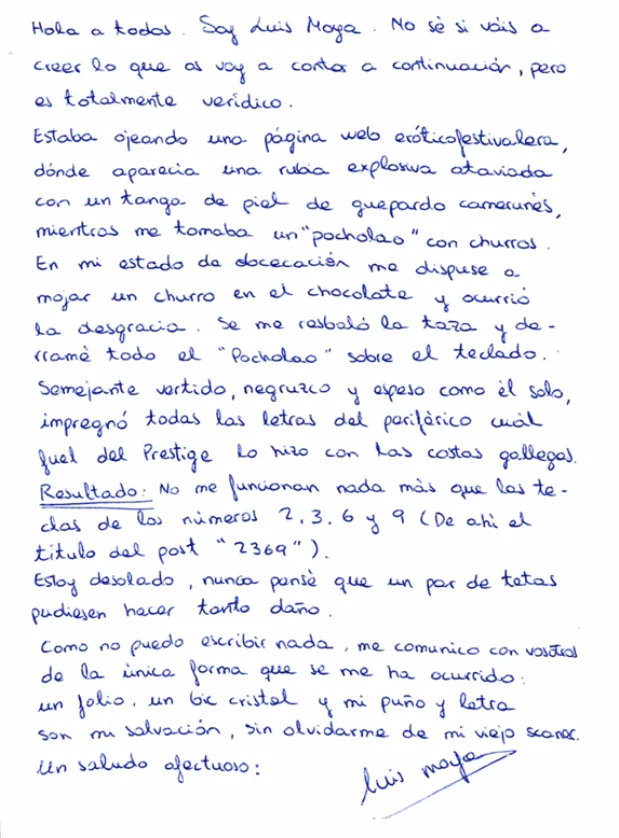 Hola a todos. Soy Luis Moya. No sè si vàis a
creer lo que os voy a contar a continuación, pero
es totalmente verídico.
Estaba ojeando una página web eróticofestivalera,
dónde aparecia una rubia explosiva ataviada
con un tanga de piel de guepardo camerunés,
mientras me tomaba un "pocholao" con churros.
En mi estado de docecación me dispuse a
mojar un churro en el chocolate y ocurrió
la desgracia. Se me resbaló la taza y de-
rramè todo el "Pocholao" sobre el teclado.
Semejante vertido, negruzco y espeso como èl solo,
impregnó todas las letras del perifèrico cuál
fuel del Prestige lo hizo con las costas gallegas.
Resultado: No me funcionan nada màs que las te-
clas de los números 2, 3, 6 y 9 (De ahì el
titulo del post "2369").
Estoy desolado, nunca pensè que un par de tetas
pudiesen hacer tanto daño.
Como no puedo escribir nada, me comunico con vosotros
de la única forma que se me ha ocurrido:
un folio, un bic cristal y mi puño y letra
son mi salvación, sin olvidarme de mi viejo scaner.
Un saludo afectuoso:
luis moya